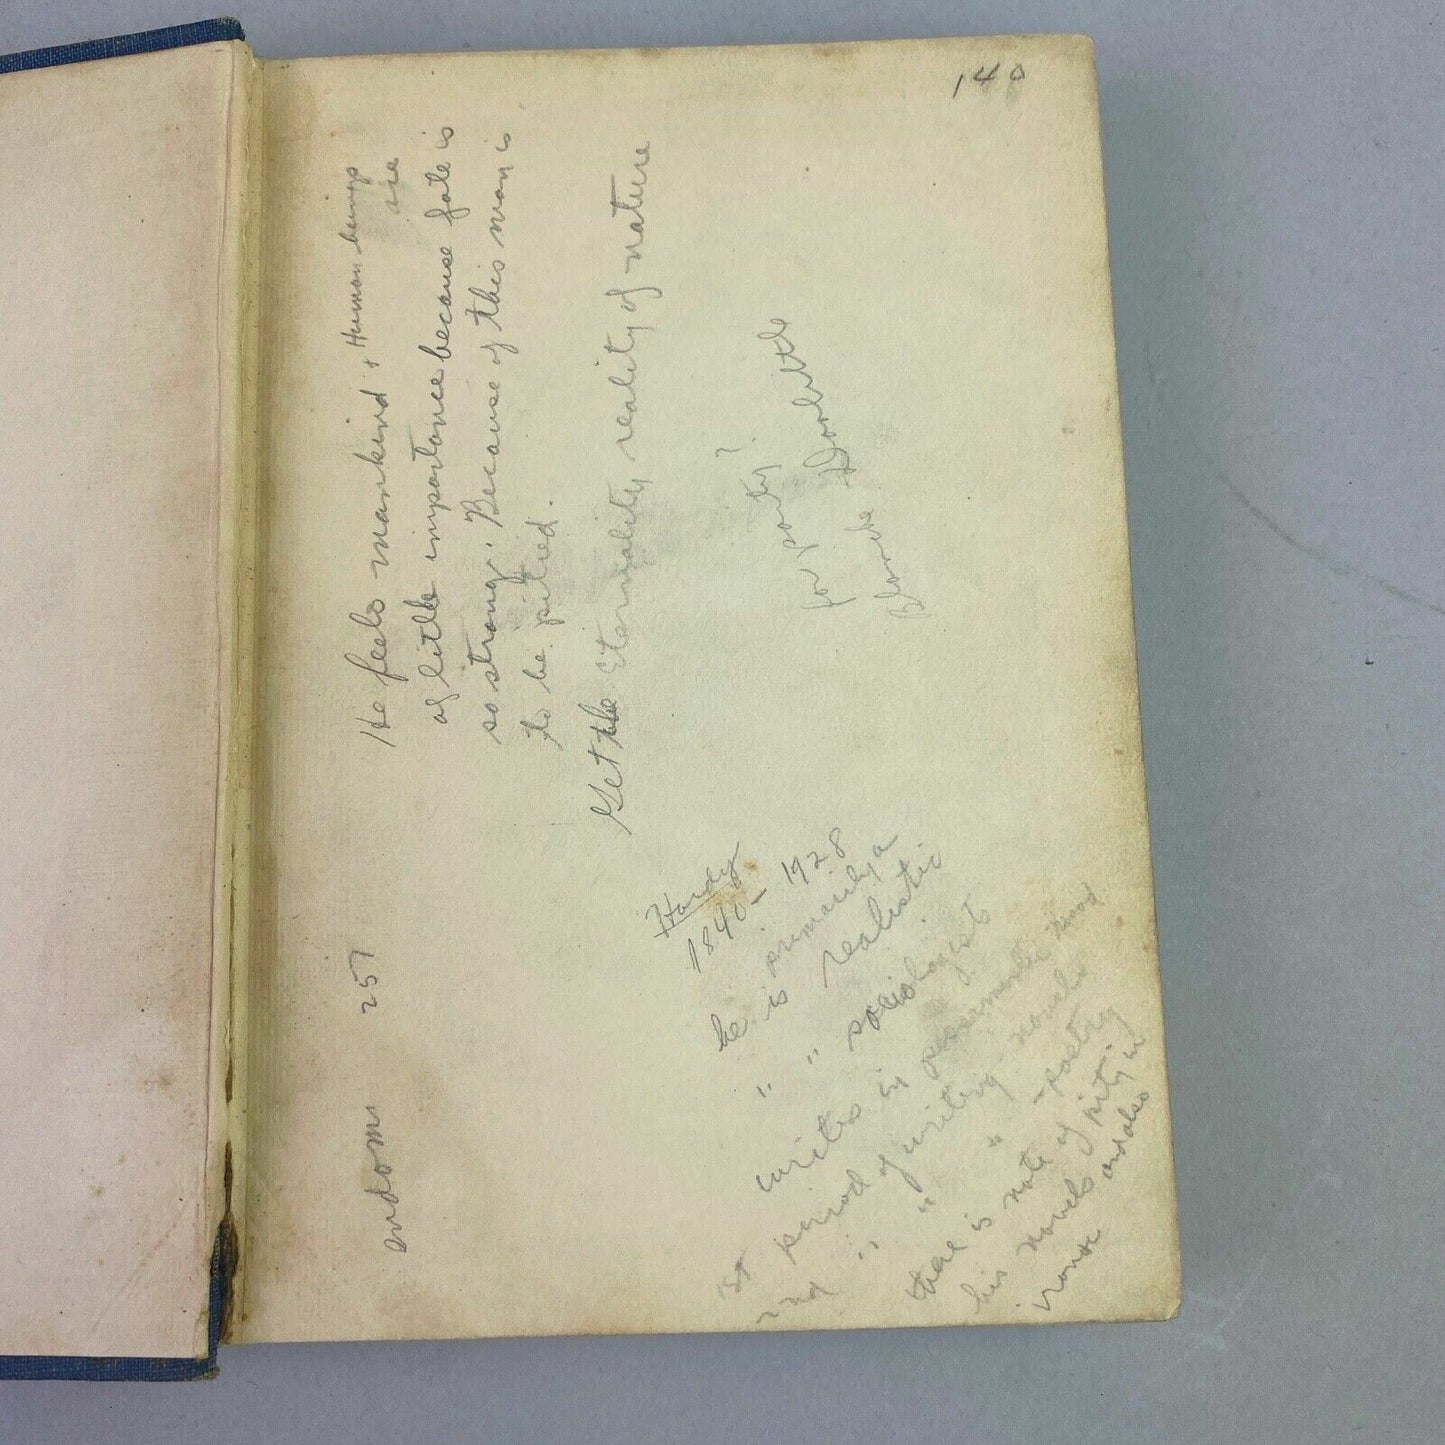 140
He feels mankind + Human beings
are
of little importance because fate is
so strong. Because of this man is
to be pitied.
Get the Eternality reality of nature
for party?
Blanche Doolittle
257
Hardy
1840 - 1928
he is primarily a
" " realistic
sociologist
writes in pessimistic mood
1st period of writing novels
2nd " " " - poetry
there is note of pity in
his novels and also
ironic